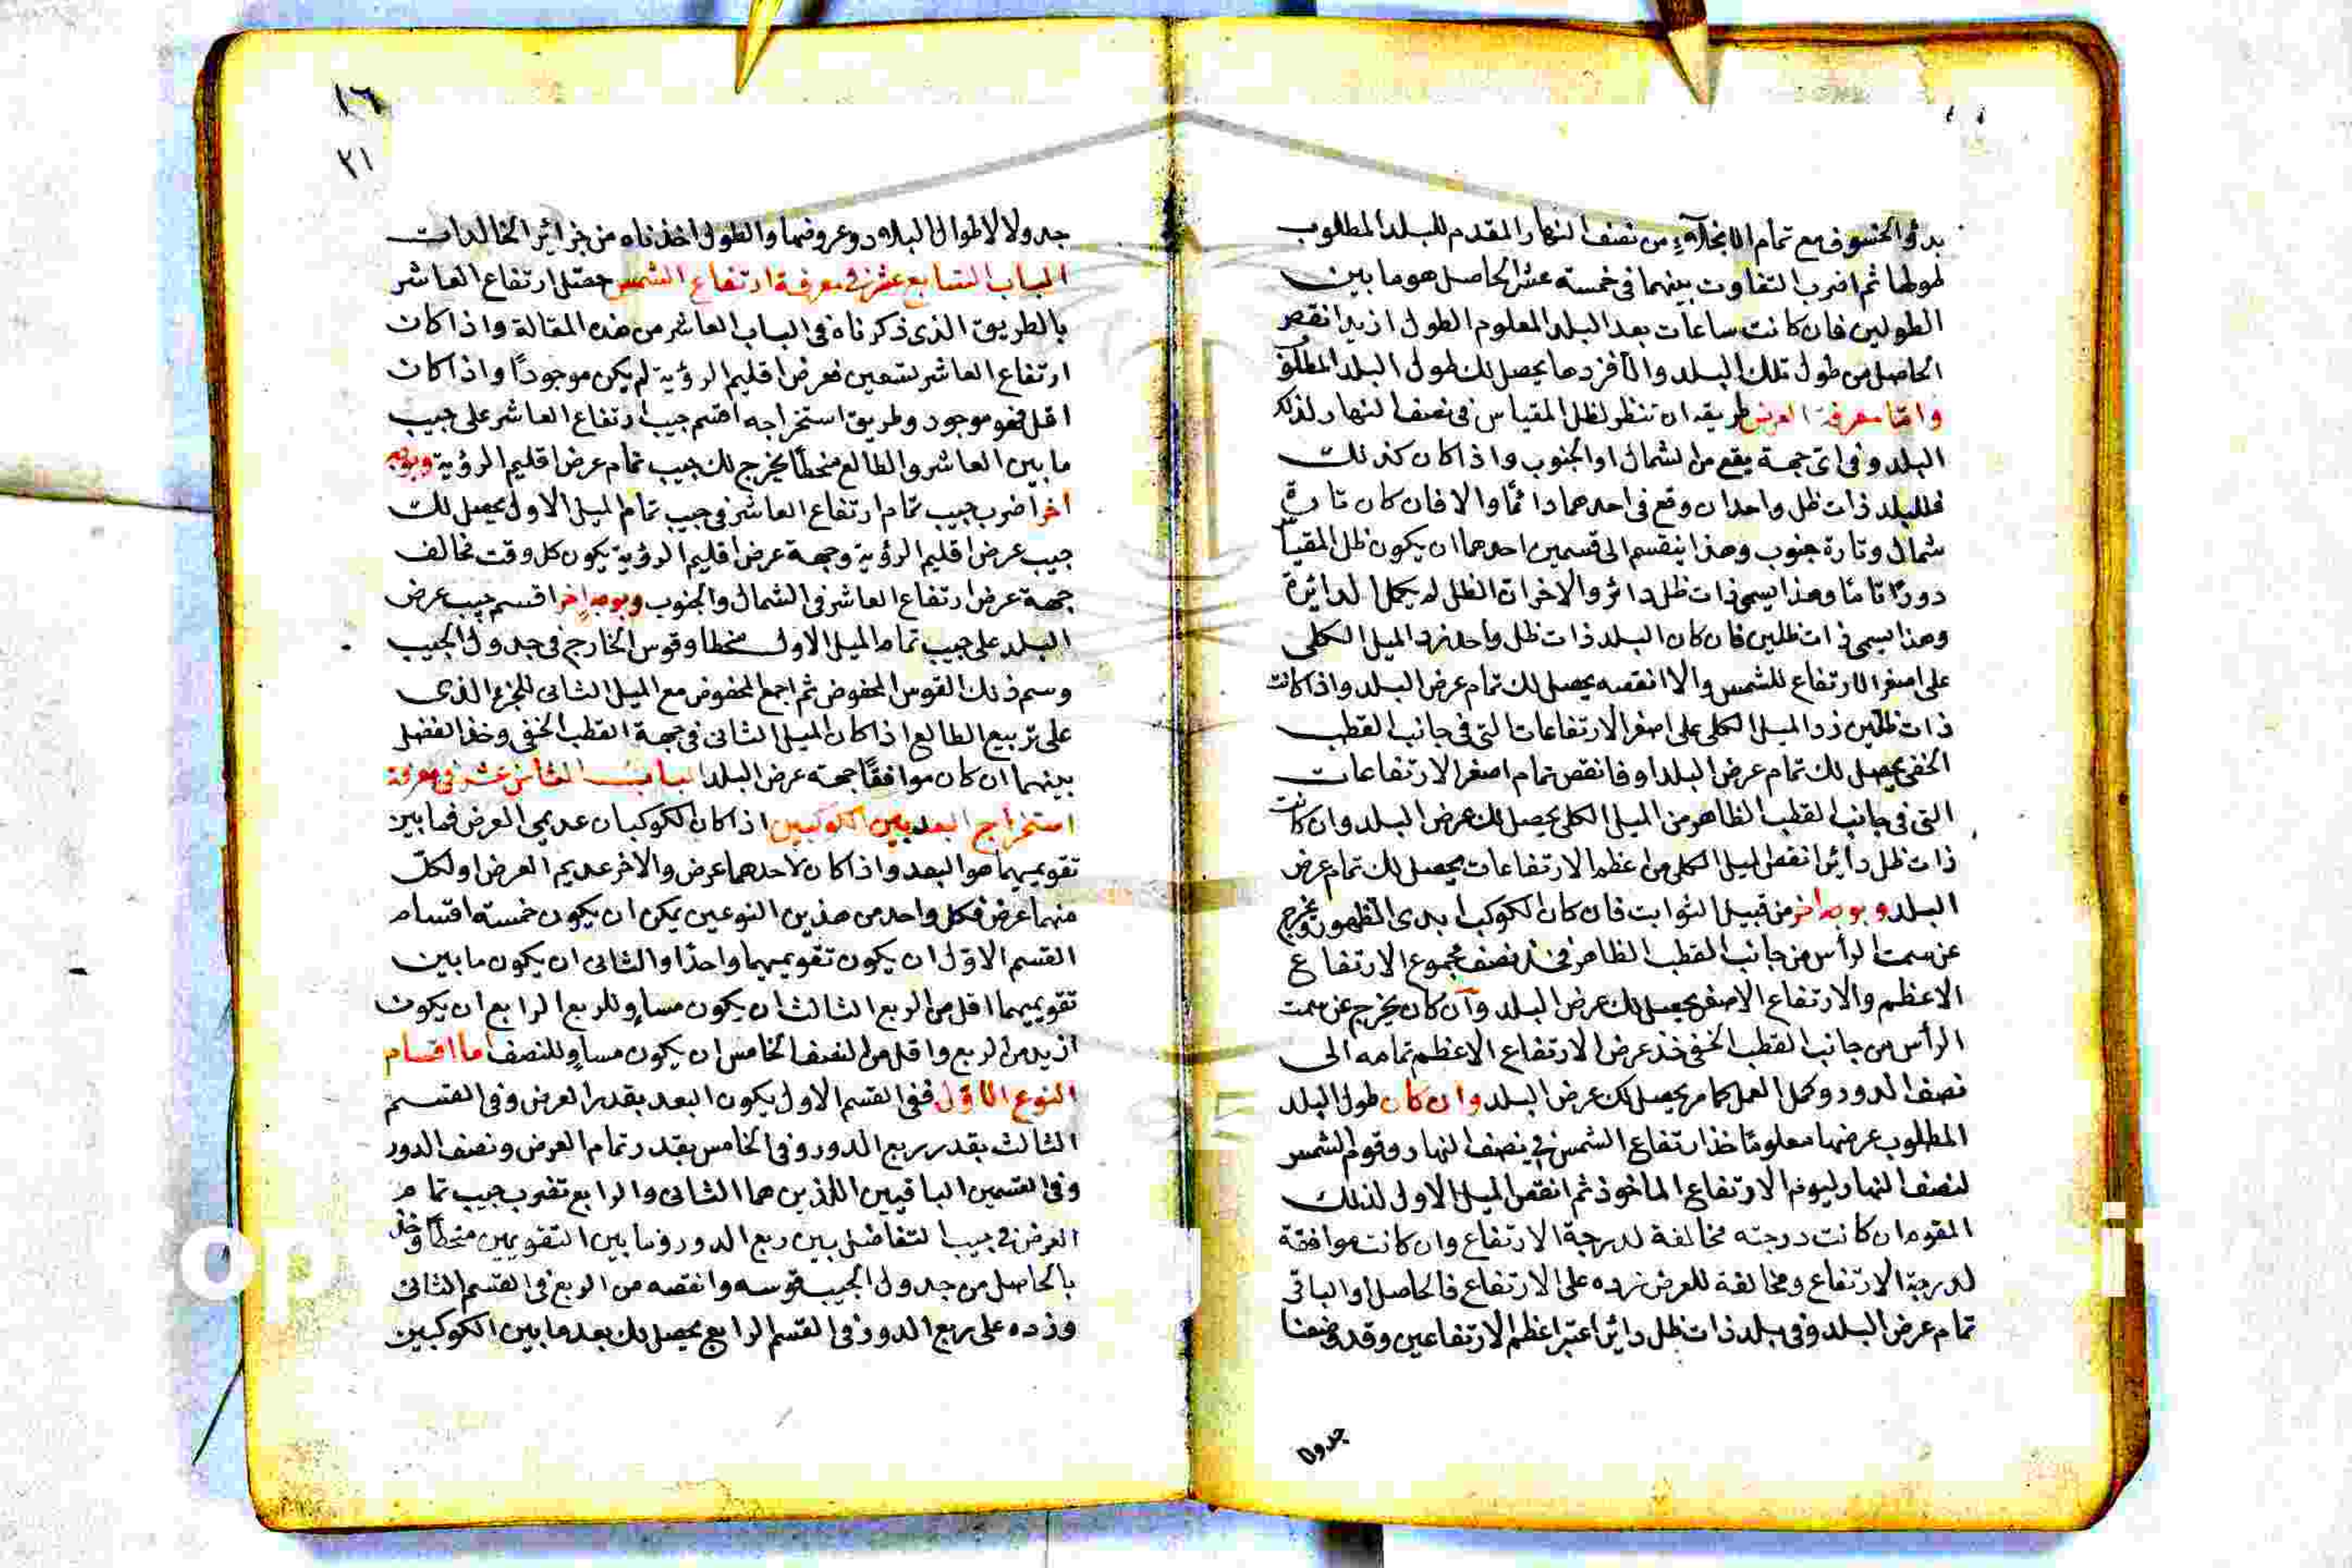 بدؤ الخسوف مع تمام الانجلاء من نصف النهار المقدم للبلد المطلوب
طولها ثم اضرب التفاوت بينهما فى خمسة عشر الحاصل هو ما بين
الطولين فان كانت ساعات بعد البلد المعلوم الطول ازيد انقص
الحاصل من طول تلك البلد والا فزدها يحصل لك طول البلد المطلوب
واما معرفة العرض طريقه ان تنظر لظل المقياس فى نصف النهار لذلك
البلد وفى اى جهة يقع من الشمال او الجنوب واذا كان كذلك
فللبلد ذات ظل واحد ان وقع فى احدهما دائمًا والا فان كان تارة
شمال وتارة جنوب وهذا ينقسم الى قسمين احدهما ان يكون ظل المقياس
دورًا تامًا وهذا يسمى ذات ظل دائر والاخر ان الظل لم يكمل الدائرة
وهذا يسمى ذات ظلين فان كان البلد ذات ظل واحد زد الميل الكلى
على اصغر الارتفاع للشمس والا انقصه يحصل لك تمام عرض البلد واذا كانت
ذات ظلين زد الميل الكلى على اصغر الارتفاعات التى فى جانب القطب
الخفى يحصل لك تمام عرض البلد او فانقص تمام اصغر الارتفاعات
التى فى جانب القطب الظاهر من الميل الكلى يحصل لك عرض البلد وان كانت
ذات ظل دائر انقص الميل الكلى من اعظم الارتفاعات يحصل لك تمام عرض
البلد وبوجه اخر من قبيل الثوابت فان كان الكوكب ابدى الظهور ويخرج
عن سمت الرأس من جانب القطب الظاهر فخذ نصف مجموع الارتفاع
الاعظم والارتفاع الاصغر يحصل لك عرض البلد وان كان يخرج عن سمت
الرأس من جانب القطب الخفى خذ عرض الارتفاع الاعظم تمامه الى
نصف الدور وكمل العمل كما مر يحصل لك عرض البلد وان كان طول البلد
المطلوب عرضها معلومًا خذ ارتفاع الشمس فى نصف النهار وقوم الشمس
لنصف النهار ليوم الارتفاع الماخوذ ثم انقص الميل الاول لذلك
المقوم ان كانت درجته مخالفة لدرجة الارتفاع وان كانت موافقة
لدرجة الارتفاع ومخالفة للعرض زده على الارتفاع فالحاصل او الباقى
تمام عرض البلد وفى بلد ذات ظل دائر اعتبر اعظم الارتفاعين وقد وضعنا
جدولا
١٦
٢١
جدولا لاطوال البلاد وعروضها والطول اخذناه من جزائر الخالدات
الباب السابع عشر فى معرفة ارتفاع الشمس حصّل ارتفاع العاشر
بالطريق الذى ذكرناه فى الباب العاشر من هذه المقالة واذا كان
ارتفاع العاشر تسعين فعرض اقليم الرؤية لم يكن موجودًا واذا كان
اقل فهو موجود وطريق استخراجه اقسم جيب ارتفاع العاشر على جيب
ما بين العاشر والطالع منحطًا يخرج لك جيب تمام عرض اقليم الرؤية وبوجه
اخر اضرب جيب تمام ارتفاع العاشر فى جيب تمام الميل الاول يحصل لك
جيب عرض اقليم الرؤية وجهة عرض اقليم الرؤية يكون كل وقت مخالف
جهة عرض ارتفاع العاشر فى الشمال والجنوب وبوجه اخر اقسم جيب عرض
البلد على جيب تمام الميل الاول منحطا وقوس الخارج فى جدول الجيب
وسم ذلك القوس المحفوض ثم اجمع المحفوض مع الميل الثانى للجزء الذى
على تربيع الطالع اذا كان الميل الثانى فى جهة القطب الخفى وخذ الفضل
بينهما ان كان موافقًا جهة عرض البلد الباب الثامن عشر فى معرفة
استخراج البعد بين الكوكبين اذا كان الكوكبان عديمى العرض فما بين
تقويميهما هو البعد واذا كان لاحدهما عرض والاخر عديم العرض او لكلّ
منهما عرض فكل واحد من هذين النوعين يمكن ان يكون خمسة اقسام
القسم الاوّل ان يكون تقويميهما واحدًا والثانى ان يكون ما بين
تقويميهما اقل من الربع الثالث ان يكون مساوٍ للربع الرابع ان يكون
ازيد من الربع واقل من النصف الخامس ان يكون مساوٍ للنصف اما اقسام
النوع الاوّل ففى القسم الاول يكون البعد بقدر العرض وفى القسم
الثالث بقدر ربع الدور وفى الخامس بقدر تمام العرض ونصف الدور
وفى القسمين الباقيين اللذين هما الثانى والرابع تضرب جيب تمام
العرض فى جيب التفاضل بين ربع الدور وما بين التقويمين منحطًا وخذ
بالحاصل من جدول الجيب قوسه وانقصه من الربع فى القسم الثانى
وزده على ربع الدور فى القسم الرابع يحصل لك بعد ما بين الكوكبين